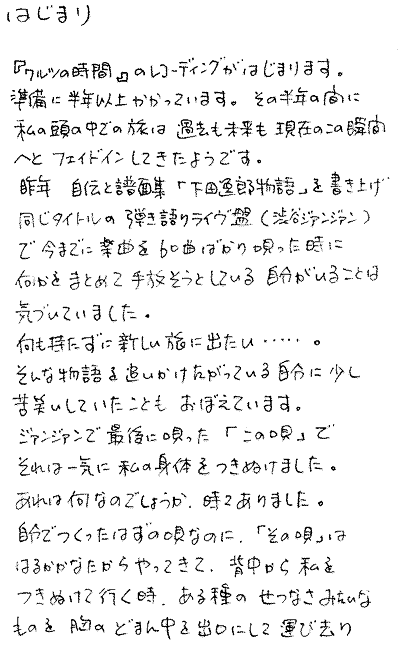 はじまり
『ワルツの時間』のレコーディングがはじまります。
準備に半年以上かかっています。その半年の間に
私の頭の中での旅は過去も未来も現在のこの瞬間
へとフェイドインしてきたようです。
昨年 自伝と譜面集「下田逸郎物語」を書き上げ
同じタイトルの弾き語りライヴ盤(渋谷ジァンジァン)
で今までに楽曲を60曲ばかり唄った時に
何かをまとめて手放そうとしている自分がいることは
気づいていました。
何も持たずに新しい旅に出たい……。
そんな物語を追いかけたがっている自分に少し
苦笑いしていたこともおぼえています。
ジァンジァンで最後に唄った「この唄」で
それは一気に私の身体をつきぬけました。
あれは何なのでしょうか、時々ありました。
自分でつくったはずの唄なのに、「その唄」は
はるかかなたからやってきて、背中から私を
つきぬけて行く時、ある種のせつなさみたいな
ものを胸のどまん中を出口にして運び去り